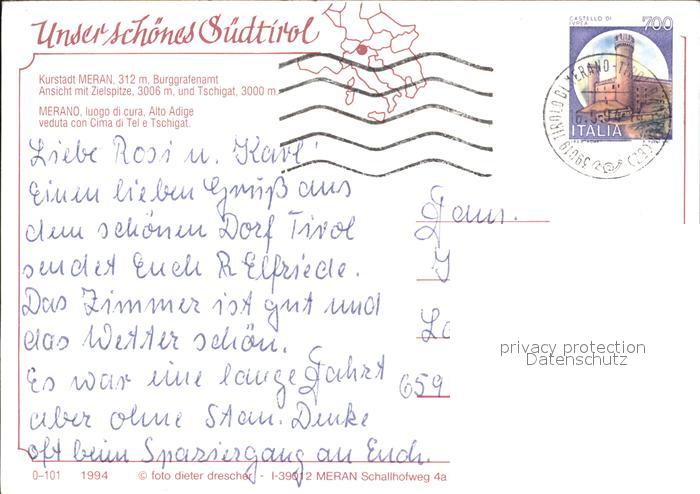 Unser schönes Südtirol
Kurstadt MERAN, 312 m, Burggrafenamt
Ansicht mit Zielspitze, 3006 m, und Tschigat, 3000 m.
MERANO, luogo di cura, Alto Adige
veduta con Cima di Tel e Tschigat.
CASTELLO DI
IVREA
700
ITALIA
39019 TIROLO DI MERANO
Liebe Rosi u. Karl!
Einen lieben Gruß aus
dem schönen Dorf Tirol
sendet Euch R Elfriede.
Das Zimmer ist gut und
das Wetter schön.
Es war eine lange Fahrt
aber ohne Stau. Denke
oft beim Spaziergang an Euch.
Fam.
659
privacy protection
Datenschutz
0-101 1994 © foto dieter drescher - I-39012 MERAN Schallhofweg 4a